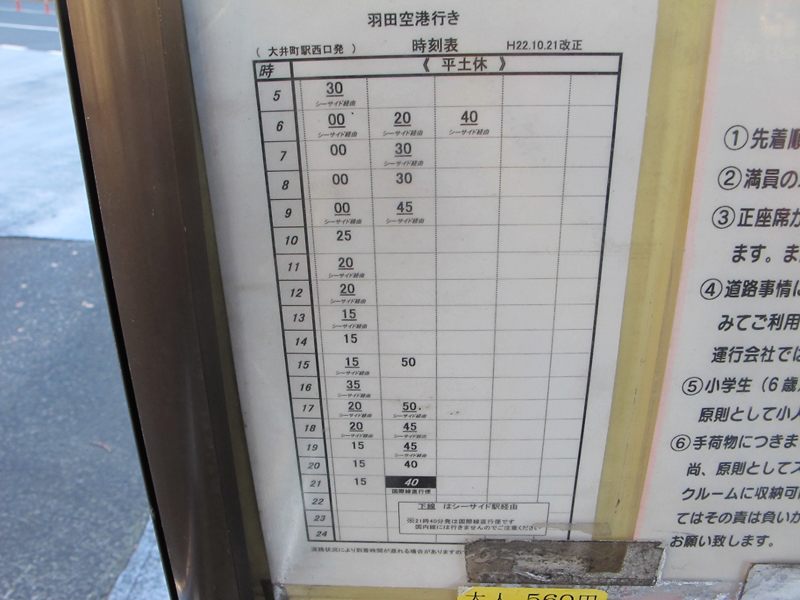 羽田空港行き
( 大井町駅西口発 ) 時刻表 H22.10.21改正
時 《 平土休 》
5 30
シーサイド経由
6 00 20 40
シーサイド経由 シーサイド経由 シーサイド経由
7 00 30
シーサイド経由
8 00 30
9 00 45
シーサイド経由 シーサイド経由
10 25
11 20
シーサイド経由
12 20
シーサイド経由
13 15
シーサイド経由
14 15
15 15 50
シーサイド経由
16 35
シーサイド経由
17 20 50
シーサイド経由 シーサイド経由
18 20 45
シーサイド経由 シーサイド経由
19 15 45
シーサイド経由
20 15 40
21 15 40
国際線直行便
22
23
24
下線 はシーサイド駅経由
※21時40分発は国際線直行便です
国内線には行きませんのでご注意ください
道路状況により到着時間が遅れる場合があります
大人 560円
①先着順
②満員の
③正座席が
ます。ま
④道路事情に
みてご利用
運行会社では
⑤小学生(6歳
原則として小人
⑥手荷物につきま
尚、原則としてス
クルームに収納可能
てはその責は負いか
お願い致します。